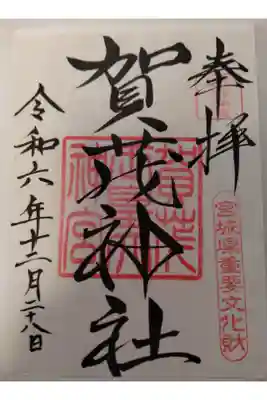 奉拝
宮城県重要文化財
賀茂神社
令和六年十二月二十八日